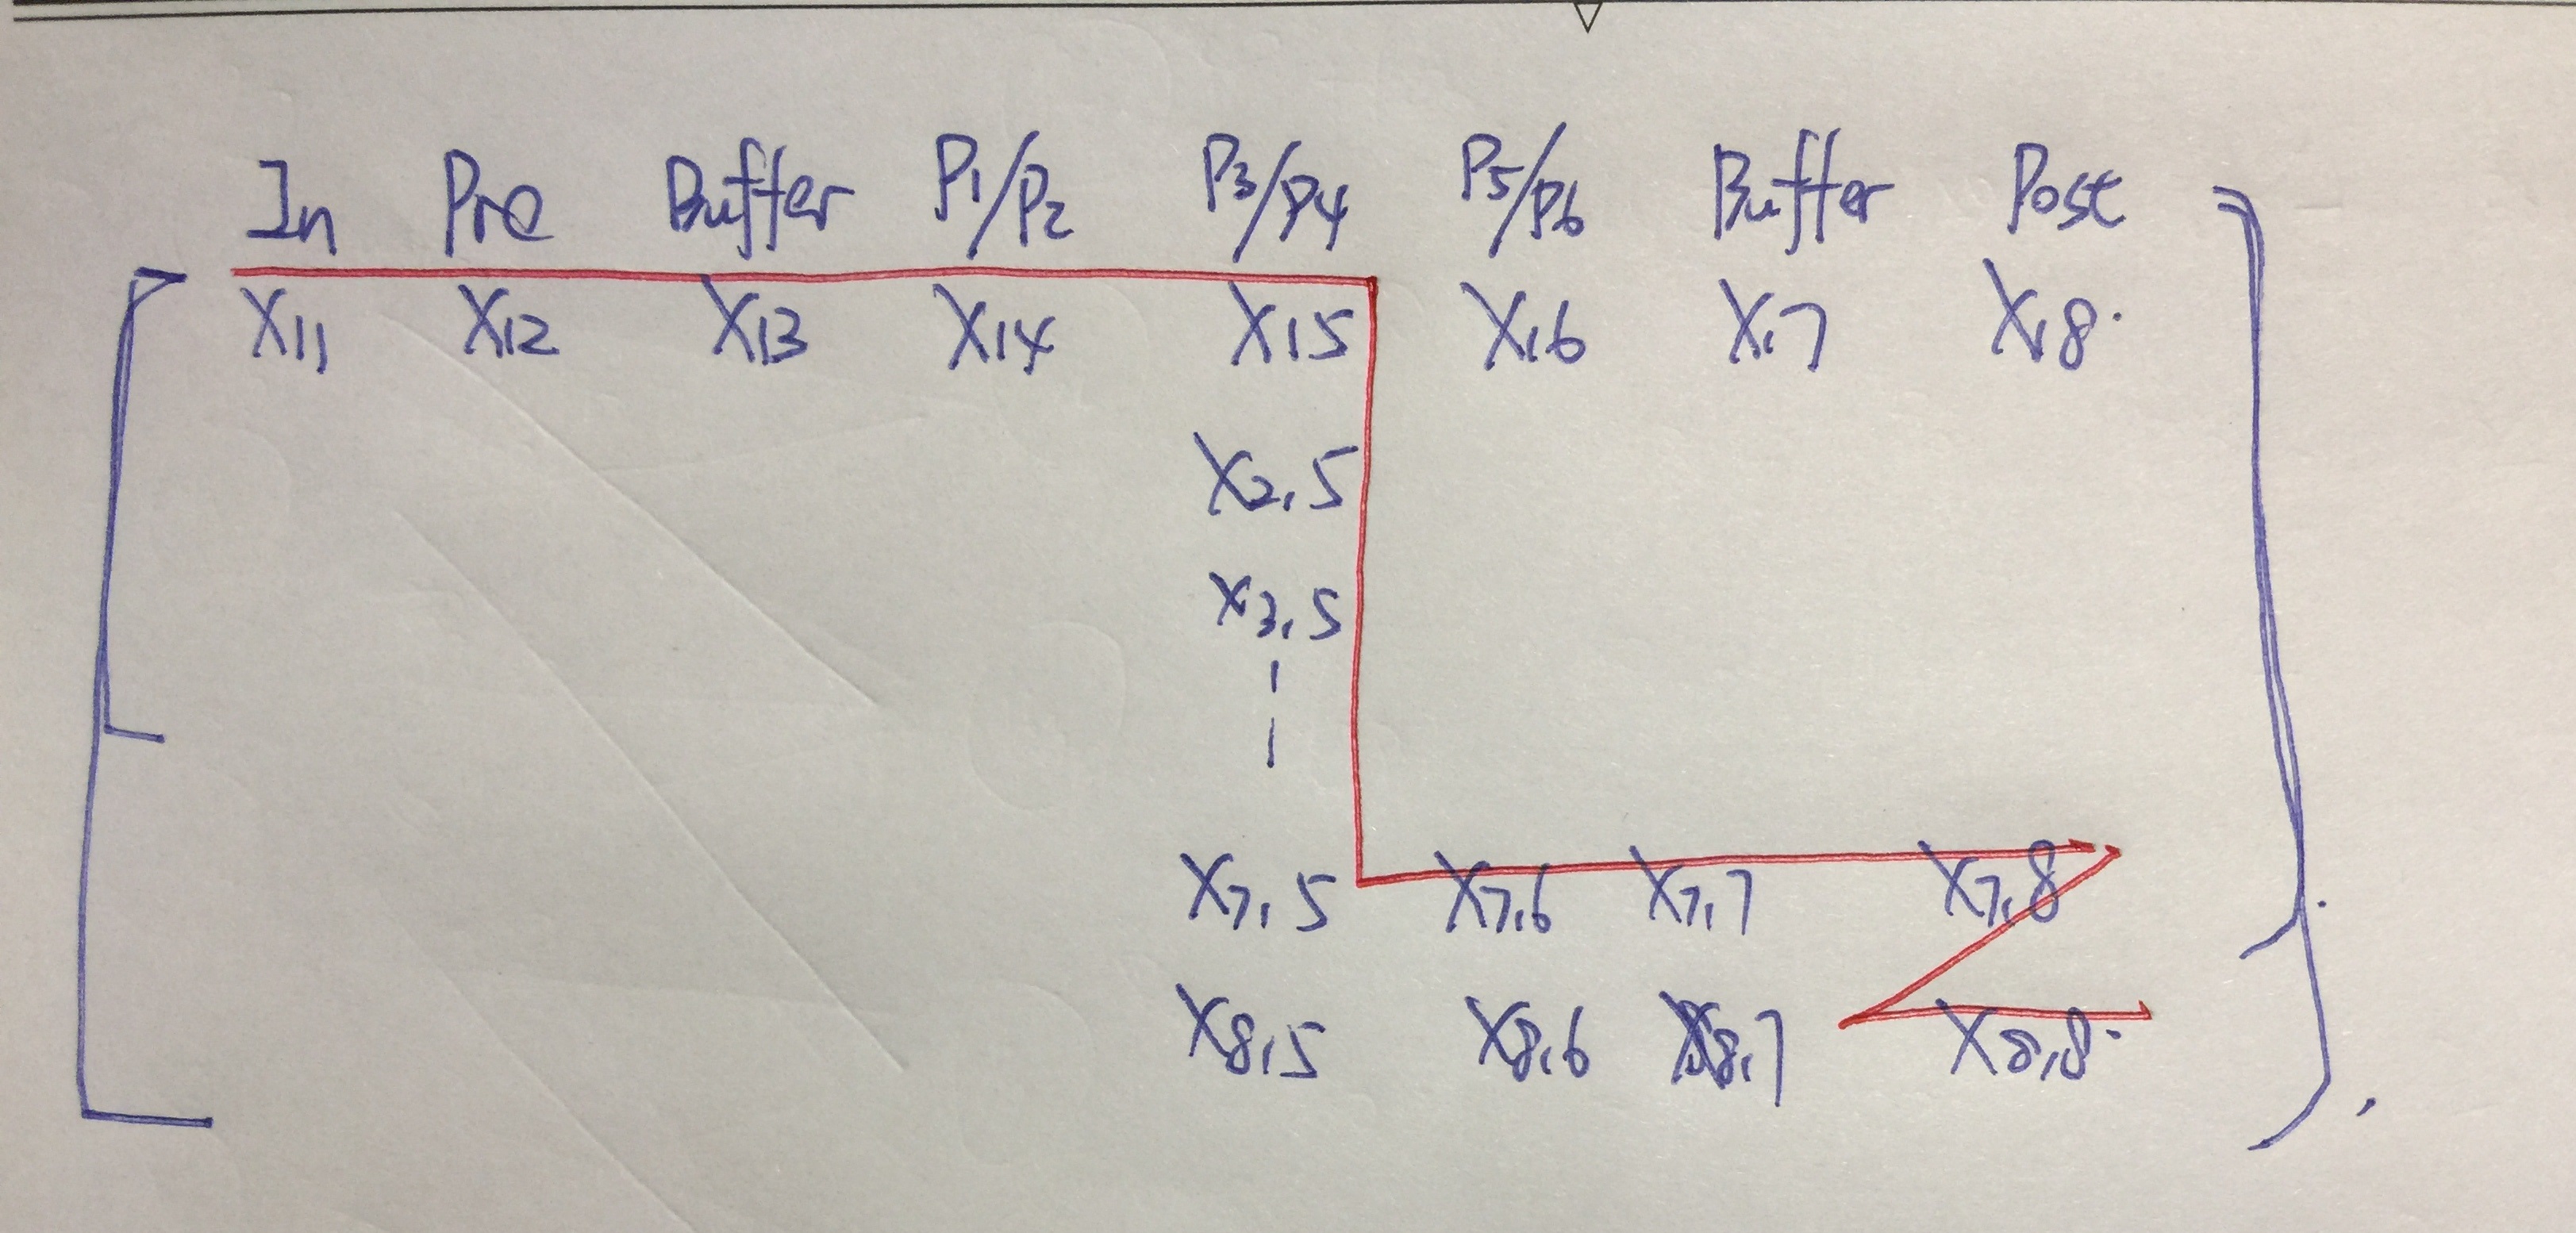 In Pre Buffer P1/P2 P3/P4 P5/P6 Buffer Post
X11 X12 X13 X14 X15 X16 X17 X18.
X2,5
X3,5
X7,5 X7,6 X7,7 X7,8
X8,5 X8,6 X8,7 X8,8.